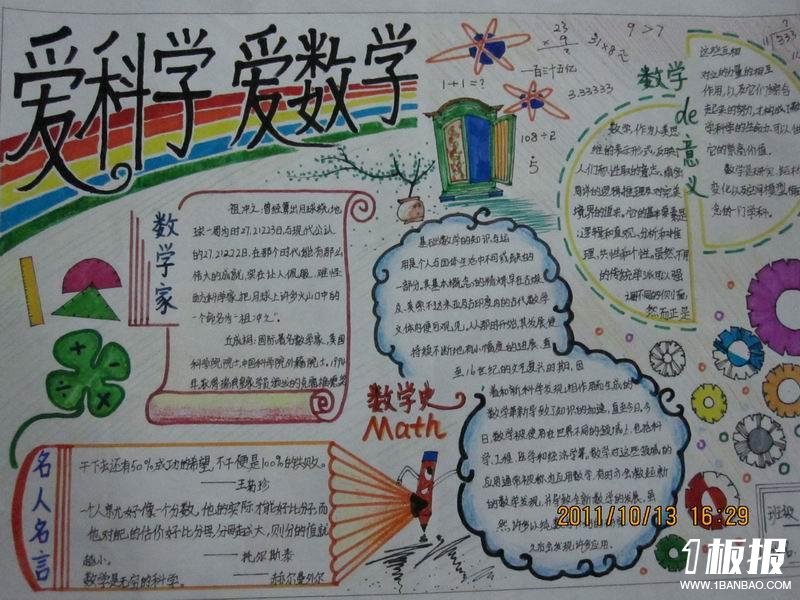 爱科学 爱数学
1+1=?
23
× 9
9>7
108÷2
3.33333
数学de意义
这些互相
对立的力量的相互
作用,以及它们综合
起来的努力,才构成了数
学科学的生命力、可
它的崇高价值。
数学,作为人类思
维的表示形式,反映了
人们积进取的意志、缜密
周详的逻辑推理及对完美
境界的追求。它的基本要素是
:逻辑和直观、分析和推
理、共性和个性。虽然不同
的传统学派可以强
调不同的侧面,
然而正是
数学家
祖冲之:曾经算出月球绕地
球一周为时27.21223日,与现代公认
的27.21222日,在那个时代能有那么
伟大的成就,实在让人佩服,难怪
科学家把月球上许多火山口中的
一个命名为"祖冲之"。
丘成桐:国际著名数学家,美国
科学院院士,中国科学院外籍院士。
基础数学的知识与运
用是个人与团体生活中不可或缺的
一部分。其基本概念的精炼早在古埃
及、美索不达米亚及古印度内的古代数学
文体内便可观见。从那时开始,其发展便
持续不断地有小幅度的进展,直
至16世纪的文艺复兴时期,因
着和新科学发现相作用而生成的
数学革新导致了知识的加速,直至今日。今
日,数学被使用在世界不同的领域上,包括科
学、工程、医学和经济学等。数学对这些领域的
应用通常被称为应用数学,有时亦会激起新
的数学发现,并导致全新学科的发展。虽
然许多以纯
之后会发现许多应用。
数学史
Math
名人名言
干下去还有50%成功的希望,不干便是100%的失败。
——王菊珍
一个人就好像一个分数,他的实际才能好比分子,而
他对自己的估价好比分母,分母越大,则分的值就
越小。 ——托尔斯泰
数学是无穷的科学。 ——赫尔曼外尔
2011/10/13 16:29
班级
1板报
WWW.1BANBAO.COM